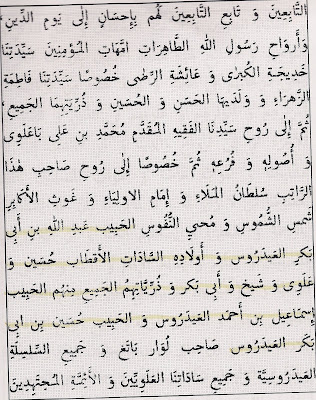 التَّابِعِينَ وَ تَابِعِ التَّابِعِينَ لَهُم بِإِحسَانٍ إِلَى يَومِ الدِّينِ
وَأَروَاحِ رَسُولِ اللهِ الطَّاهِرَاتِ أُمَّهَاتِ المُؤمِنِينَ سَيِّدَتِنَا
خَدِيجَةِ الكُبرَى وَ عَائِشَةِ الرِّضَى خُصُوصًا سَيِّدَتِنَا فَاطِمَةِ
الزَّهرَاءِ وَ وَلَدَيهَا الحَسَنِ وَ الحُسَينِ وَ ذُرِّيَّتِهِمَا الجَمِيعِ،
ثُمَّ إِلَى رُوحِ سَيِّدِنَا الفَقِيهِ المُقَدَّمِ مُحَمَّدِ بنِ عَلِى بَاعَلَوِى
وَ أُصُولِهِ وَ فُرُعِهِ ثُمَّ خُصُوصًا إِلَى رُوحِ صَاحِبِ هَذَا
الرَّاتِبِ سُلطَانُ المَلَاءِ وَ إِمَامِ الاولِيَاءِ وَ غَوثِ الأَكَابِرِ
شَمسِ الشُّمُوسِ وَ مُحيِي النُّفُوسِ الحَبِيب عَبدِ اللهِ بنِ أَبِي
بَكرِ العَيدَرُوس وَ أَولَادِهِ السَّادَاتِ الأَقطَابِ حُسَين وَ
عَلَوِى وَ شَيخ وَ أَبِي بَكر وَ ذُرِّيَّاتِهِم الجَمِيعِ مِنهُم الحَبِيب
إِسمَاعِيل بنِ أَحمَد العَيدَرُوس وَ الحَبِيب حُسَين بنِ ابِى
بَكَر العَيدَرُوس صَاحِبِ لُوَار بَاتَغ وَ جَمِيعِ السِّلسِلَةِ
العَيدَرُوسِيَّة وَ جَمِيعِ سَادَاتِنَا العَلَوِيِّين وَ الأَئِمَّةِ المُجتَهِدِينَ